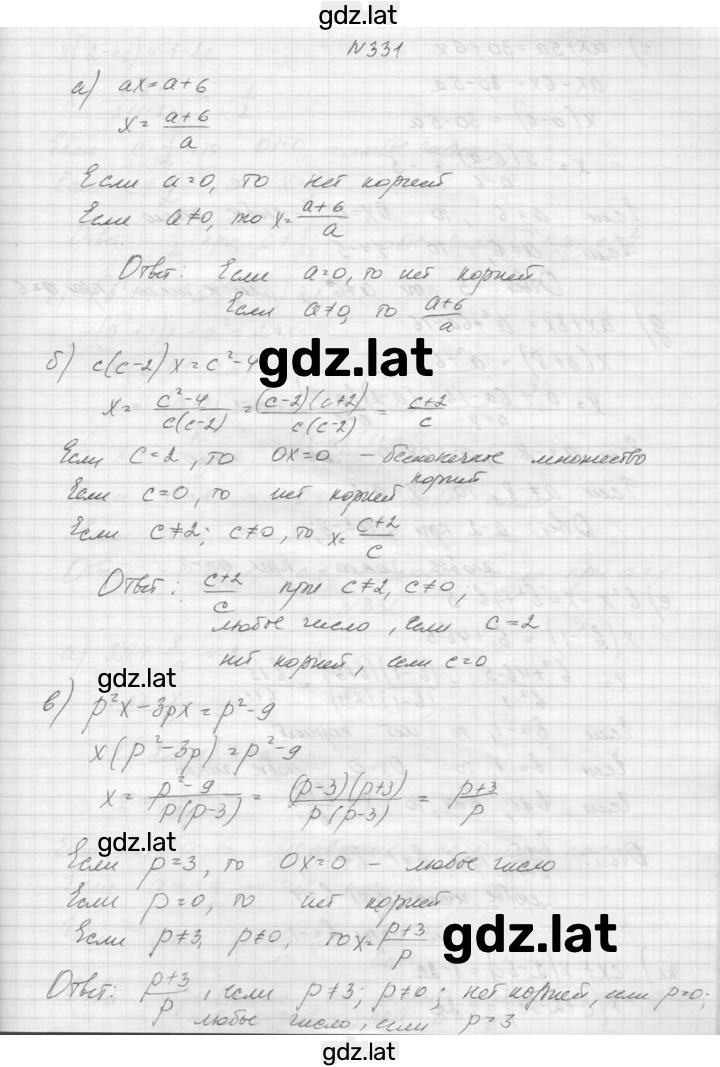 gdz.lat
N331
а) ax = a+6
x = \frac{a+6}{a}
Если a=0, то нет корней
Если a≠0, то x = \frac{a+6}{a}
Ответ: Если a=0, то нет корней
Если a≠0, то \frac{a+6}{a}
gdz.lat
б) c(c-2)x = c²-4
x = \frac{c²-4}{c(c-2)} = \frac{(c-2)(c+2)}{c(c-2)} = \frac{c+2}{c}
Если c=2, то 0x=0 – бесконечное множество
корней
Если c=0, то нет корней
Если c≠2; c≠0, то x = \frac{c+2}{c}
Ответ: \frac{c+2}{c} при c≠2, c≠0,
любое число, если c=2
нет корней, если c=0
gdz.lat
в) p²x-3px = p²-9
x(p²-3p) = p²-9
x = \frac{p²-9}{p(p-3)} = \frac{(p-3)(p+3)}{p(p-3)} = \frac{p+3}{p}
gdz.lat
Если p=3, то 0x=0 – любое число
Если p=0, то нет корней
Если p≠3, p≠0, то x = \frac{p+3}{p}
gdz.lat
Ответ: \frac{p+3}{p}, если p≠3; p≠0; нет корней, если p=0;
любое число, если p=3
gdz.lat